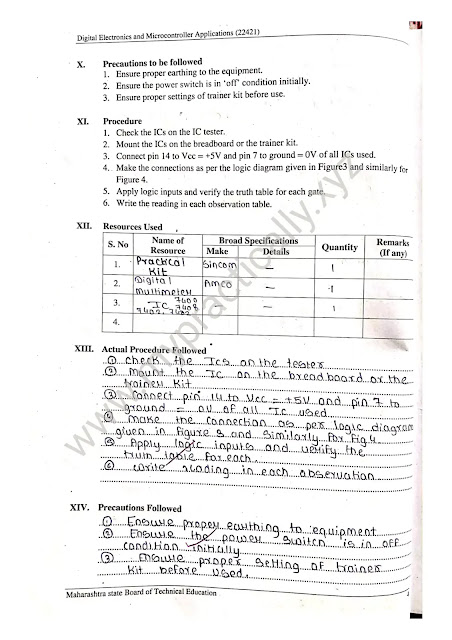 Digital Electronics and Microcontroller Applications (22421)
X. Precautions to be followed
1. Ensure proper earthing to the equipment.
2. Ensure the power switch is in 'off' condition initially.
3. Ensure proper settings of trainer kit before use.
XI. Procedure
1. Check the ICs on the IC tester.
2. Mount the ICs on the breadboard or the trainer kit.
3. Connect pin 14 to Vcc = +5V and pin 7 to ground = 0V of all ICs used.
4. Make the connections as per the logic diagram given in Figure3 and similarly for
Figure 4.
5. Apply logic inputs and verify the truth table for each gate.
6. Write the reading in each observation table.
XII. Resources Used
S. No Name of Resource Broad Specifications Quantity Remarks (If any)
Make Details
1. Practical Kit Sincom — 1
2. Digital Multimeter Amco — 1
3. IC 7400 7402, 7408 — — 1
4.
XIII. Actual Procedure Followed
① Check the ICs on the tester
② mount the IC on the breadboard or the
trainer kit
③ Connect pin 14 to Vcc = +5V and pin 7 to
ground = 0V of all IC used.
④ make the connection as per logic diagram
given in figure 3 and similarly for Fig 4.
⑤ Apply logic inputs and verify the
truth table for each.
⑥ write reading in each observation
XIV. Precautions Followed
① Ensure proper earthing to equipment
② Ensure the power switch is in off
condition initially
③ Ensure proper setting of trainer
kit before used.
Maharashtra state Board of Technical Education